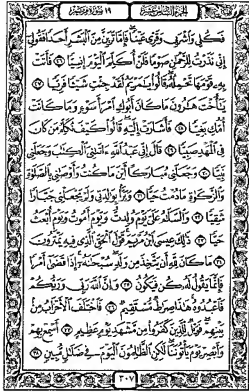 الجزء السادس عشر ١٩ سورة مريم
فَكُلِى وَٱشْرَبِى وَقَرِّى عَيْنًا فَإِمَّا تَرَيِنَّ مِنَ ٱلْبَشَرِ أَحَدًا فَقُولِىٓ
إِنِّى نَذَرْتُ لِلرَّحْمَٰنِ صَوْمًا فَلَنْ أُكَلِّمَ ٱلْيَوْمَ إِنسِيًّا ٢٦ فَأَتَتْ
بِهِۦ قَوْمَهَا تَحْمِلُهُۥ قَالُوا۟ يَٰمَرْيَمُ لَقَدْ جِئْتِ شَيْـًٔا فَرِيًّا ٢٧
يَٰٓأُخْتَ هَٰرُونَ مَا كَانَ أَبُوكِ ٱمْرَأَ سَوْءٍ وَمَا كَانَتْ
أُمُّكِ بَغِيًّا ٢٨ فَأَشَارَتْ إِلَيْهِ قَالُوا۟ كَيْفَ نُكَلِّمُ مَن كَانَ
فِى ٱلْمَهْدِ صَبِيًّا ٢٩ قَالَ إِنِّى عَبْدُ ٱللَّهِ ءَاتَىٰنِىَ ٱلْكِتَٰبَ وَجَعَلَنِى
نَبِيًّا ٣٠ وَجَعَلَنِى مُبَارَكًا أَيْنَ مَا كُنتُ وَأَوْصَٰنِى بِٱلصَّلَوٰةِ
وَٱلزَّكَوٰةِ مَا دُمْتُ حَيًّا ٣١ وَبَرًّۢا بِوَٰلِدَتِى وَلَمْ يَجْعَلْنِى جَبَّارًا
شَقِيًّا ٣٢ وَٱلسَّلَٰمُ عَلَىَّ يَوْمَ وُلِدتُّ وَيَوْمَ أَمُوتُ وَيَوْمَ أُبْعَثُ
حَيًّا ٣٣ ذَٰلِكَ عِيسَى ٱبْنُ مَرْيَمَ قَوْلَ ٱلْحَقِّ ٱلَّذِى فِيهِ يَمْتَرُونَ
٣٤ مَا كَانَ لِلَّهِ أَن يَتَّخِذَ مِن وَلَدٍ سُبْحَٰنَهُۥٓ إِذَا قَضَىٰٓ أَمْرًا
فَإِنَّمَا يَقُولُ لَهُۥ كُن فَيَكُونُ ٣٥ وَإِنَّ ٱللَّهَ رَبِّى وَرَبُّكُمْ
فَٱعْبُدُوهُ هَٰذَا صِرَٰطٌ مُّسْتَقِيمٌ ٣٦ فَٱخْتَلَفَ ٱلْأَحْزَابُ مِنۢ
بَيْنِهِمْ فَوَيْلٌ لِّلَّذِينَ كَفَرُوا۟ مِن مَّشْهَدِ يَوْمٍ عَظِيمٍ ٣٧ أَسْمِعْ بِهِمْ
وَأَبْصِرْ يَوْمَ يَأْتُونَنَا لَٰكِنِ ٱلظَّٰلِمُونَ ٱلْيَوْمَ فِى ضَلَٰلٍ مُّبِينٍ ٣٨
٣٠٧